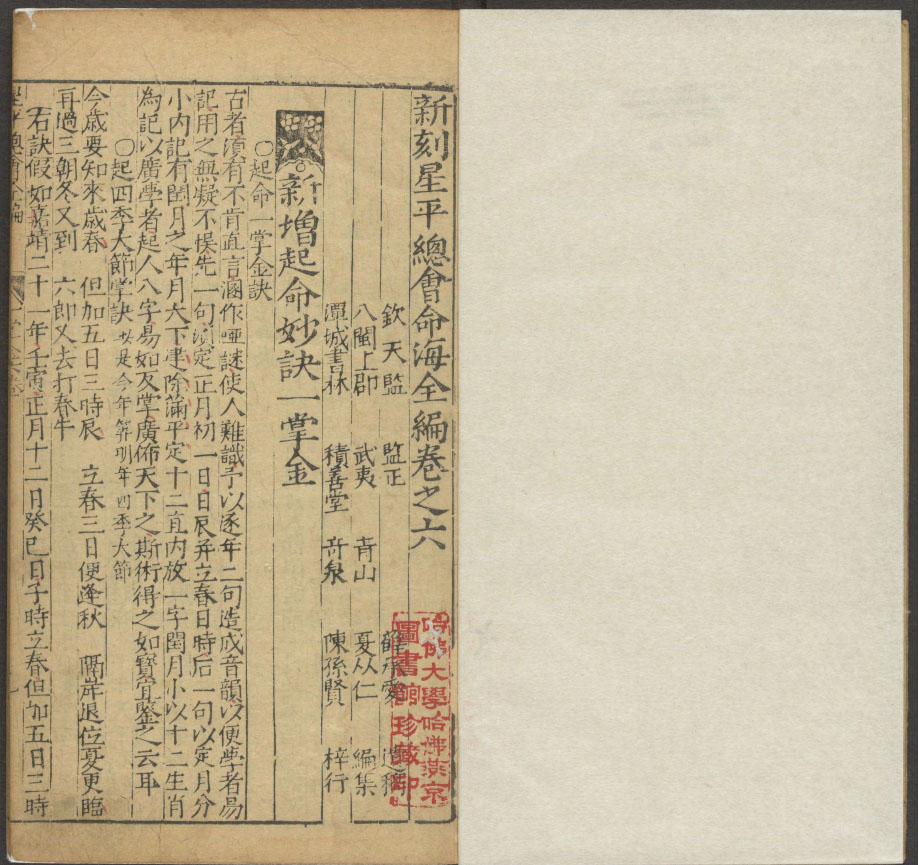 新刻星平總會命海全編卷之六
欽天監 監正
八閩上郡 武夷 青山 夏从仁 編集
潭城書林 積善堂 奇泉 陳孫賢 梓行
新增起命妙訣一掌金
〇起命一掌金訣
古者須有不肯直言涵作啞謎使人難識予以逐年二句造成音韻以便學者易
記用之無疑不悮先一句須定正月初一日日辰并立春日時后一句以定月分
小內記有閏月之年月大下建除滿平定十二直內放一字閏月小以十二生肖
為記以廣學者起人八字易如反掌廣佈天下之斯術得之如寶宜鑒之云耳
〇起四季大節掌訣 是今年筭明年四季大節
今歲要知來歲春 但加五日三時辰 立春三日便逢秋 隔岸退位夏更臨
再過三朝冬又到 六郎又去打春牛
右訣假如嘉靖二十一年壬寅正月十二日癸巳日子時立春但加五日三時
哈佛大學哈佛燕京
圖書館珍藏印